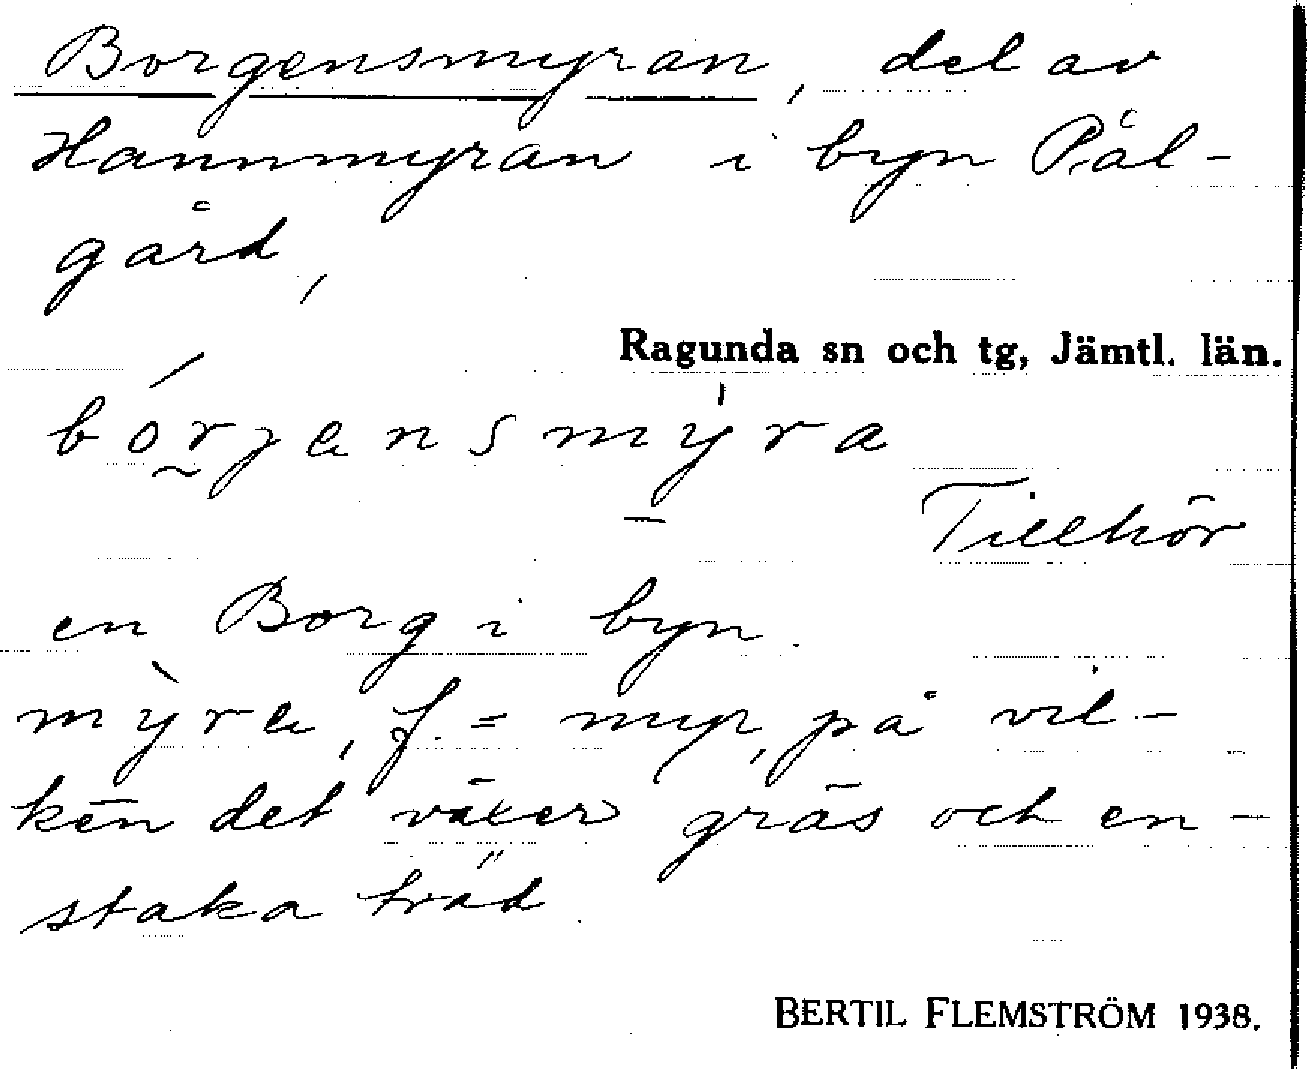 Borgensmyran, del av
Hannmyran i byn Pål-
gård,
Ragunda sn och tg, Jämtl. län.
Tillhör
en Borg i byn.
f. = myr, på vil-
ken det växer gräs och en-
staka träd.
BERTIL FLEMSTRÖM 1938.